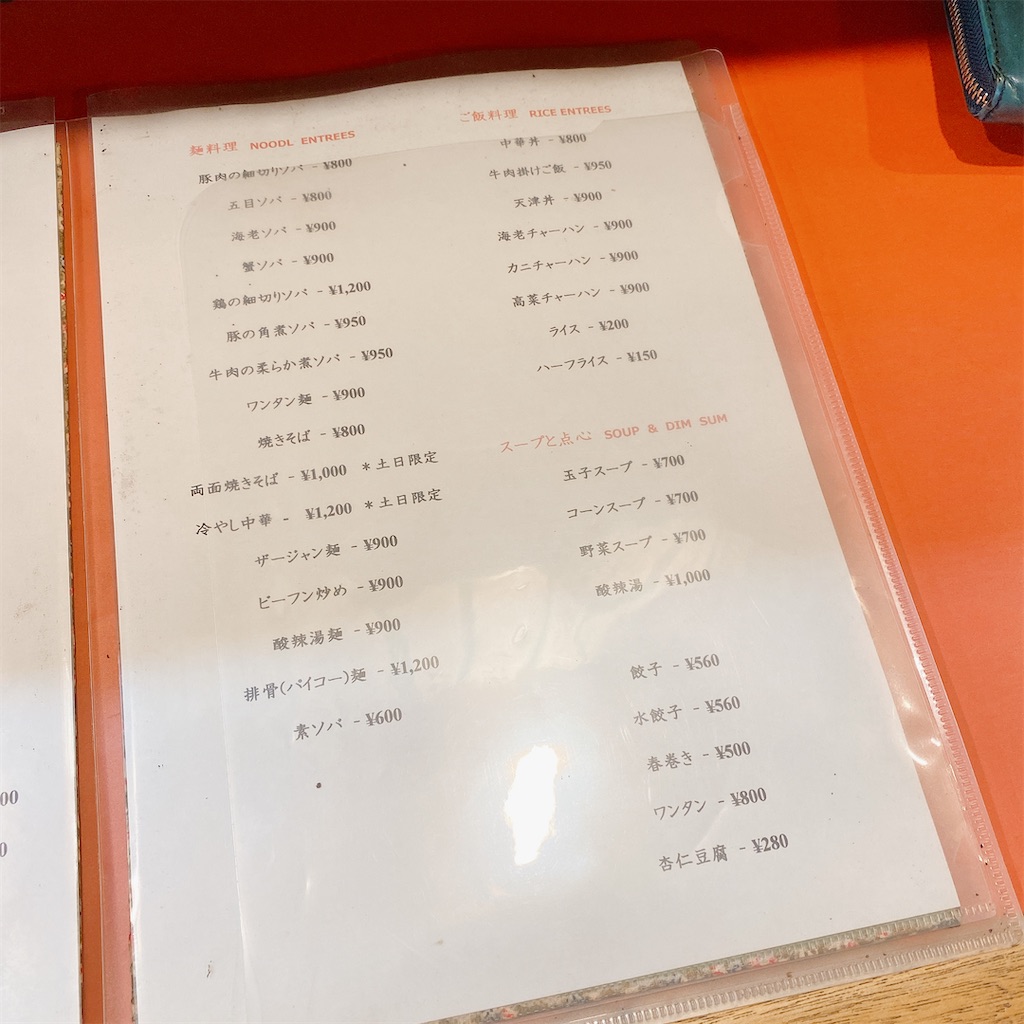 麺料理 NOODL ENTREES
豚肉の細切りソバ - ¥800
五目ソバ - ¥800
海老ソバ - ¥900
蟹ソバ - ¥900
鶏の細切りソバ - ¥1,200
豚の角煮ソバ - ¥950
牛肉の柔らか煮ソバ - ¥950
ワンタン麺 - ¥900
焼きそば - ¥800
両面焼きそば - ¥1,000 *土日限定
冷やし中華 - ¥1,200 *土日限定
ザージャン麺 - ¥900
ビーフン炒め - ¥900
酸辣湯麺 - ¥900
排骨(パイコー)麺 - ¥1,200
素ソバ - ¥600
ご飯料理 RICE ENTREES
中華丼 - ¥800
牛肉掛けご飯 - ¥950
天津丼 - ¥900
海老チャーハン - ¥900
カニチャーハン - ¥900
高菜チャーハン - ¥900
ライス - ¥200
ハーフライス - ¥150
スープと点心 SOUP & DIM SUM
玉子スープ - ¥700
コーンスープ - ¥700
野菜スープ - ¥700
酸辣湯 - ¥1,000
餃子 - ¥560
水餃子 - ¥560
春巻き - ¥500
ワンタン - ¥800
杏仁豆腐 - ¥280